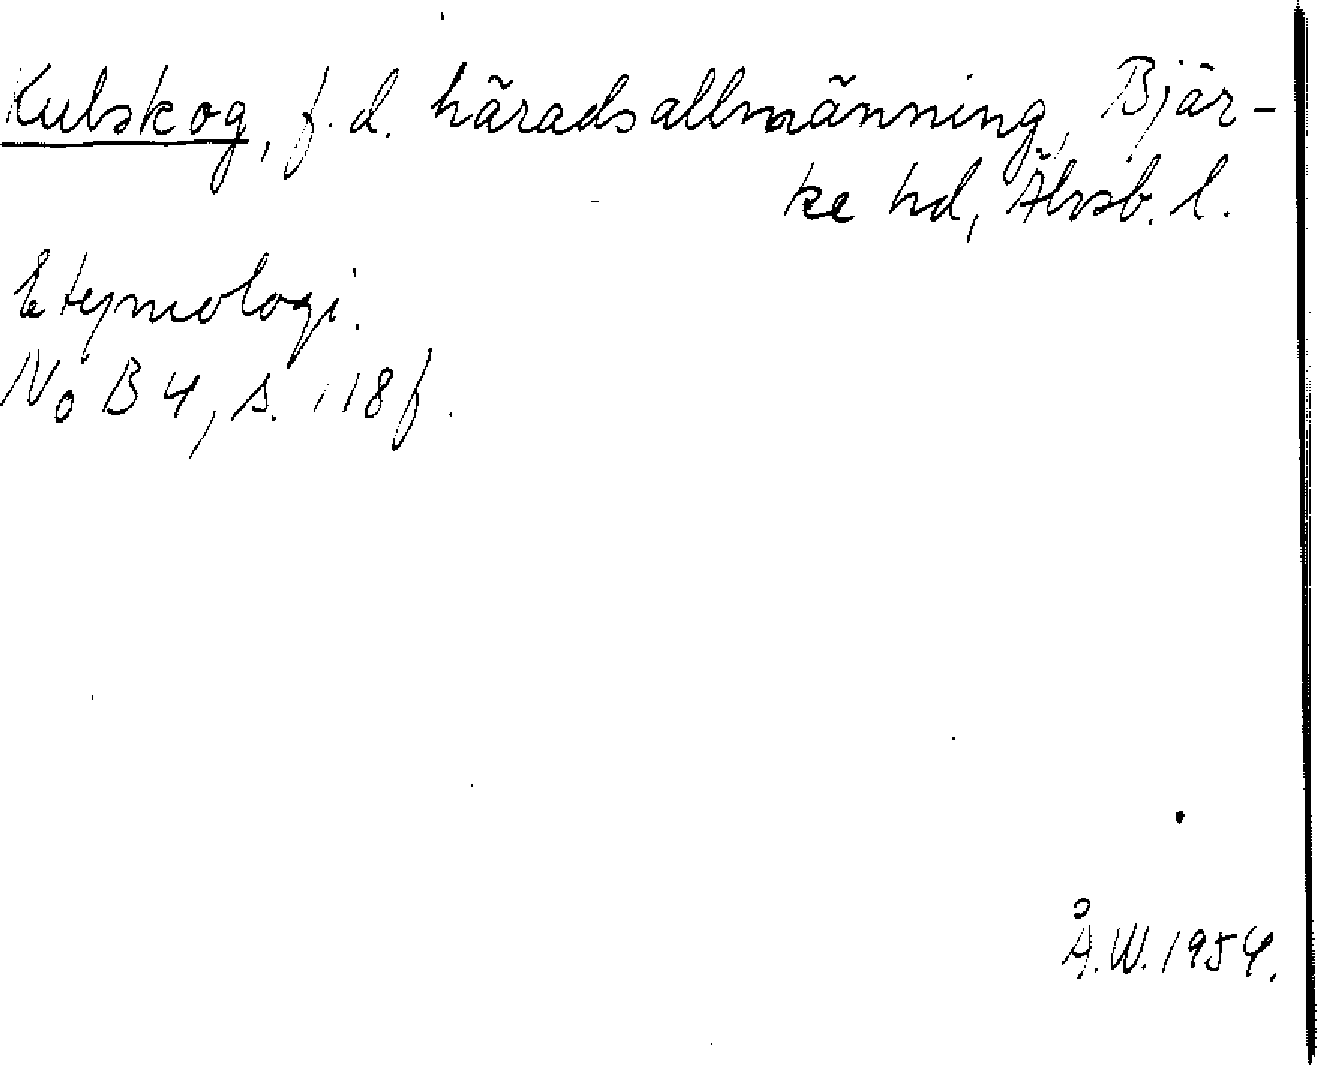 Kulskog, f.d. häradsallmänning, Bjär-
ke hd, Älvsb. l.
Etymologi.
NoB 4, s. 118 f.
Å.W. 1954.